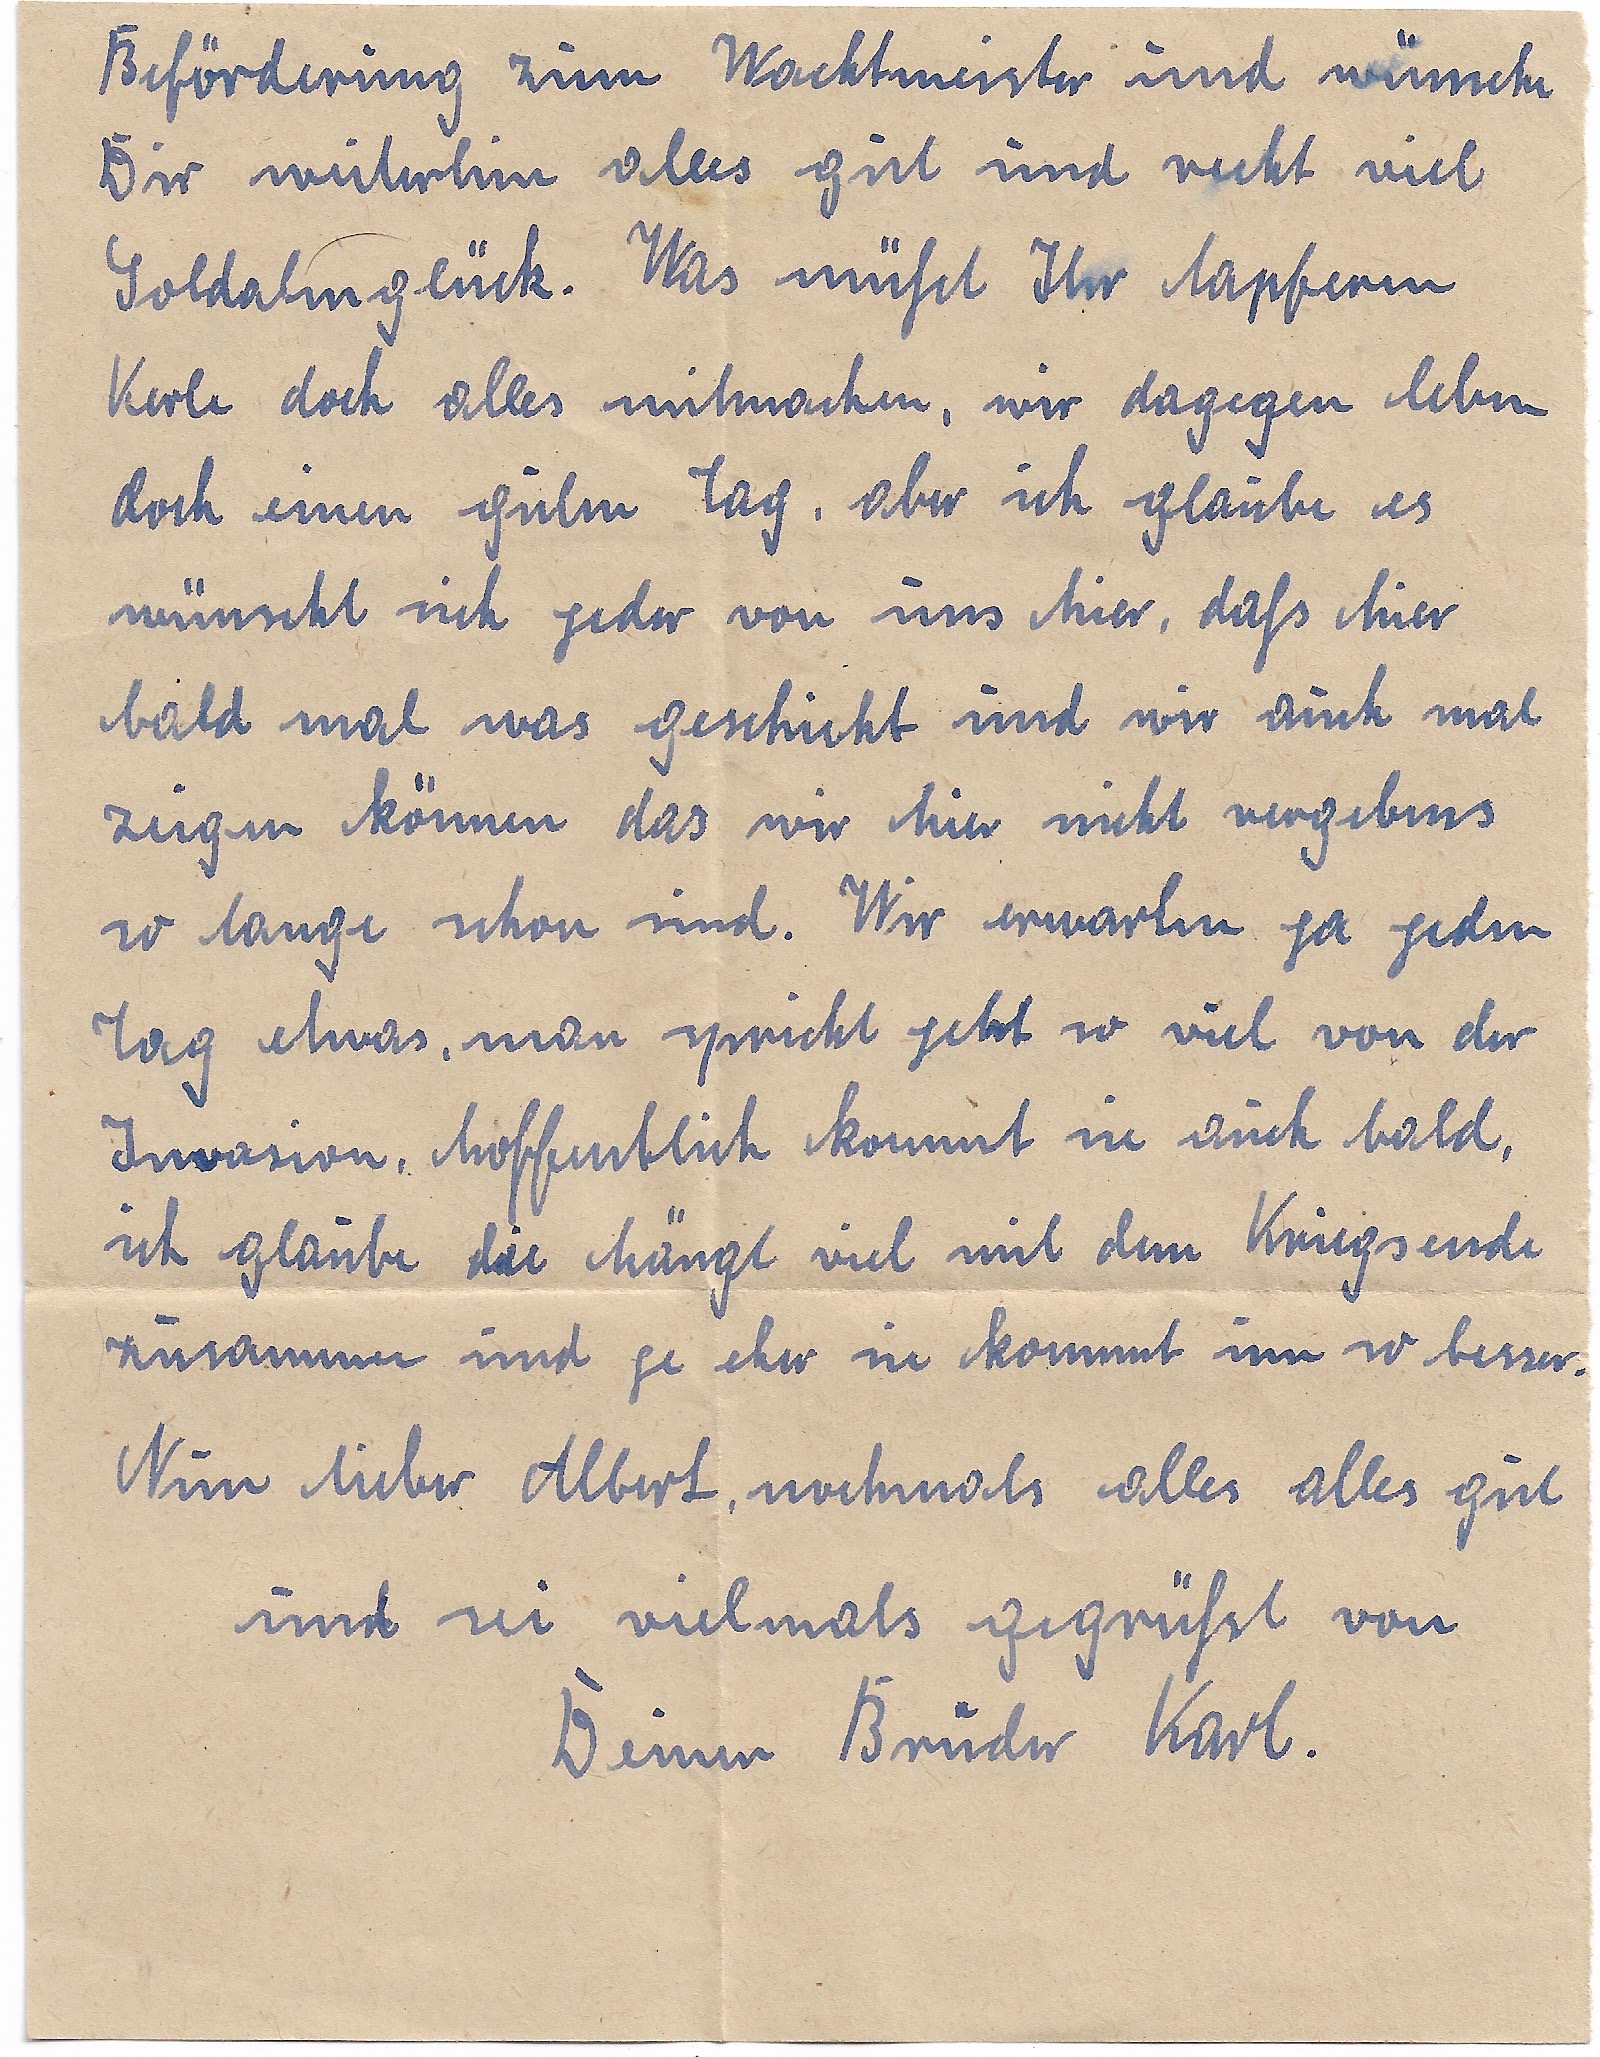 Beförderung zum Wachtmeister und wünsche
Dir weiterhin alles gut und recht viel
Soldatenglück. Was müßt Ihr tapferen
Kerle doch alles mitmachen, wir dagegen leben
doch einen guten Tag, aber ich glaube es
wünscht sich jeder von uns hier, daß hier
bald mal was geschieht und wir auch mal
zeigen können das wir hier nicht vergebens
so lange schon sind. Wir erwarten ja jeden
Tag etwas, man spricht jetzt so viel von der
Invasion, hoffentlich kommt sie auch bald,
ich glaube die hängt viel mit dem Kriegsende
zusammen und je eher sie kommt um so besser.
Nun lieber Albert, nochmals alles alles gut
und sei vielmals gegrüßt von
Deinem Bruder Karl.